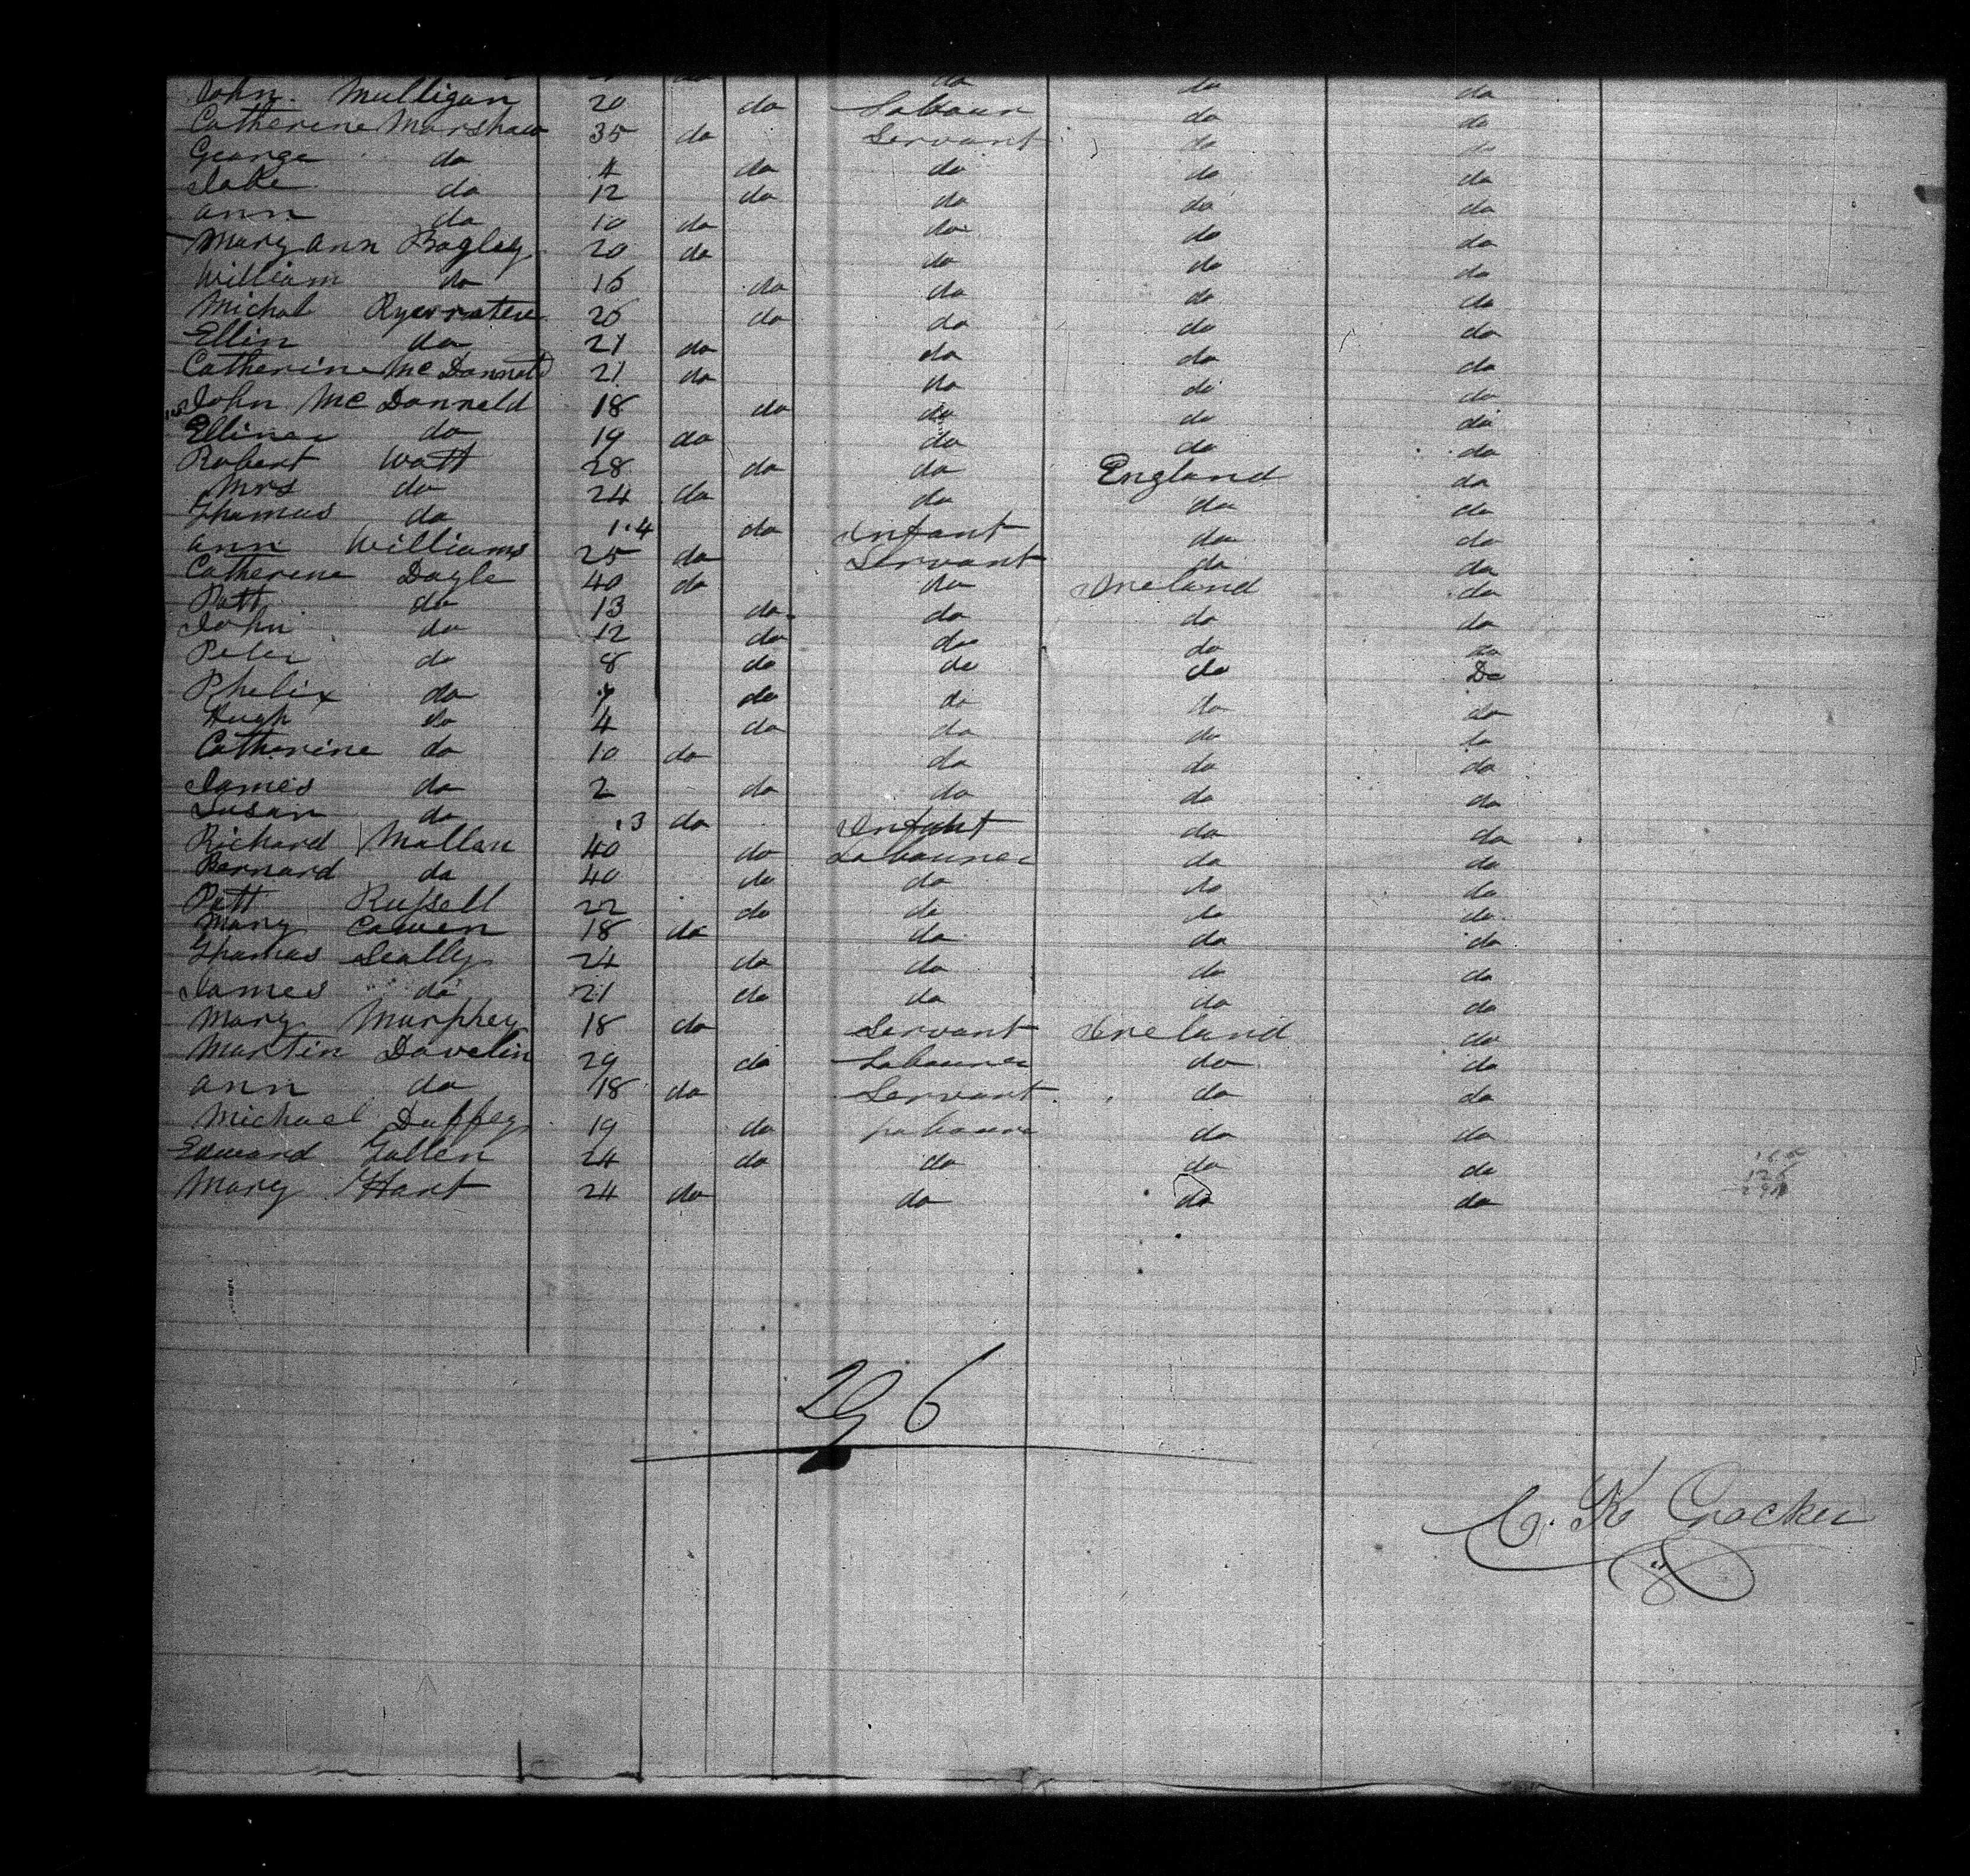 John Mulligan 20 do Labour do do
Catherine Marshaw 35 do Servant do do
George do 4 do do do do
Jake do 12 do do do do
Ann do 10 do do do do
Mary Ann Bagley 20 do do do do
William do 16 do do do do
Michal 26 do do do do
Ellin do 21 do do do do
Catherine McDonneld 21 do do do do
John McDonneld 18 do do do do
Ellinor do 19 do do do do
Robert Watt 28 do do England do
Mrs do 24 do do do do
Thomas do 1.4 do Infant do do
Ann Williams 25 do Servant do do
Catherine Dogle 40 do do Ireland do
Patt do 13 do do do do
John do 12 do do do do
Peter do 8 do do do Do
Phelix do 7 do do do do
Hugh do 4 do do do do
Catherine do 10 do do do do
James do 2 do do do do
Susan do .3 do Infant do do
Richard Mallan 40 do Labourer do do
Bernard do 40 do do do do
Patt Russell 22 do do do do
Mary Cowen 18 do do do do
Thomas Scally 24 do do do do
James do 21 do do do do
Mary Murphey 18 do Servant Ireland do
Martin Davelin 29 do Labourer do do
Ann do 18 do Servant do do
Michael Duffey 19 do Laboure do do
Edward Gallen 24 do do do do
Mary Hart 24 do do do do
296
C. K Crocker